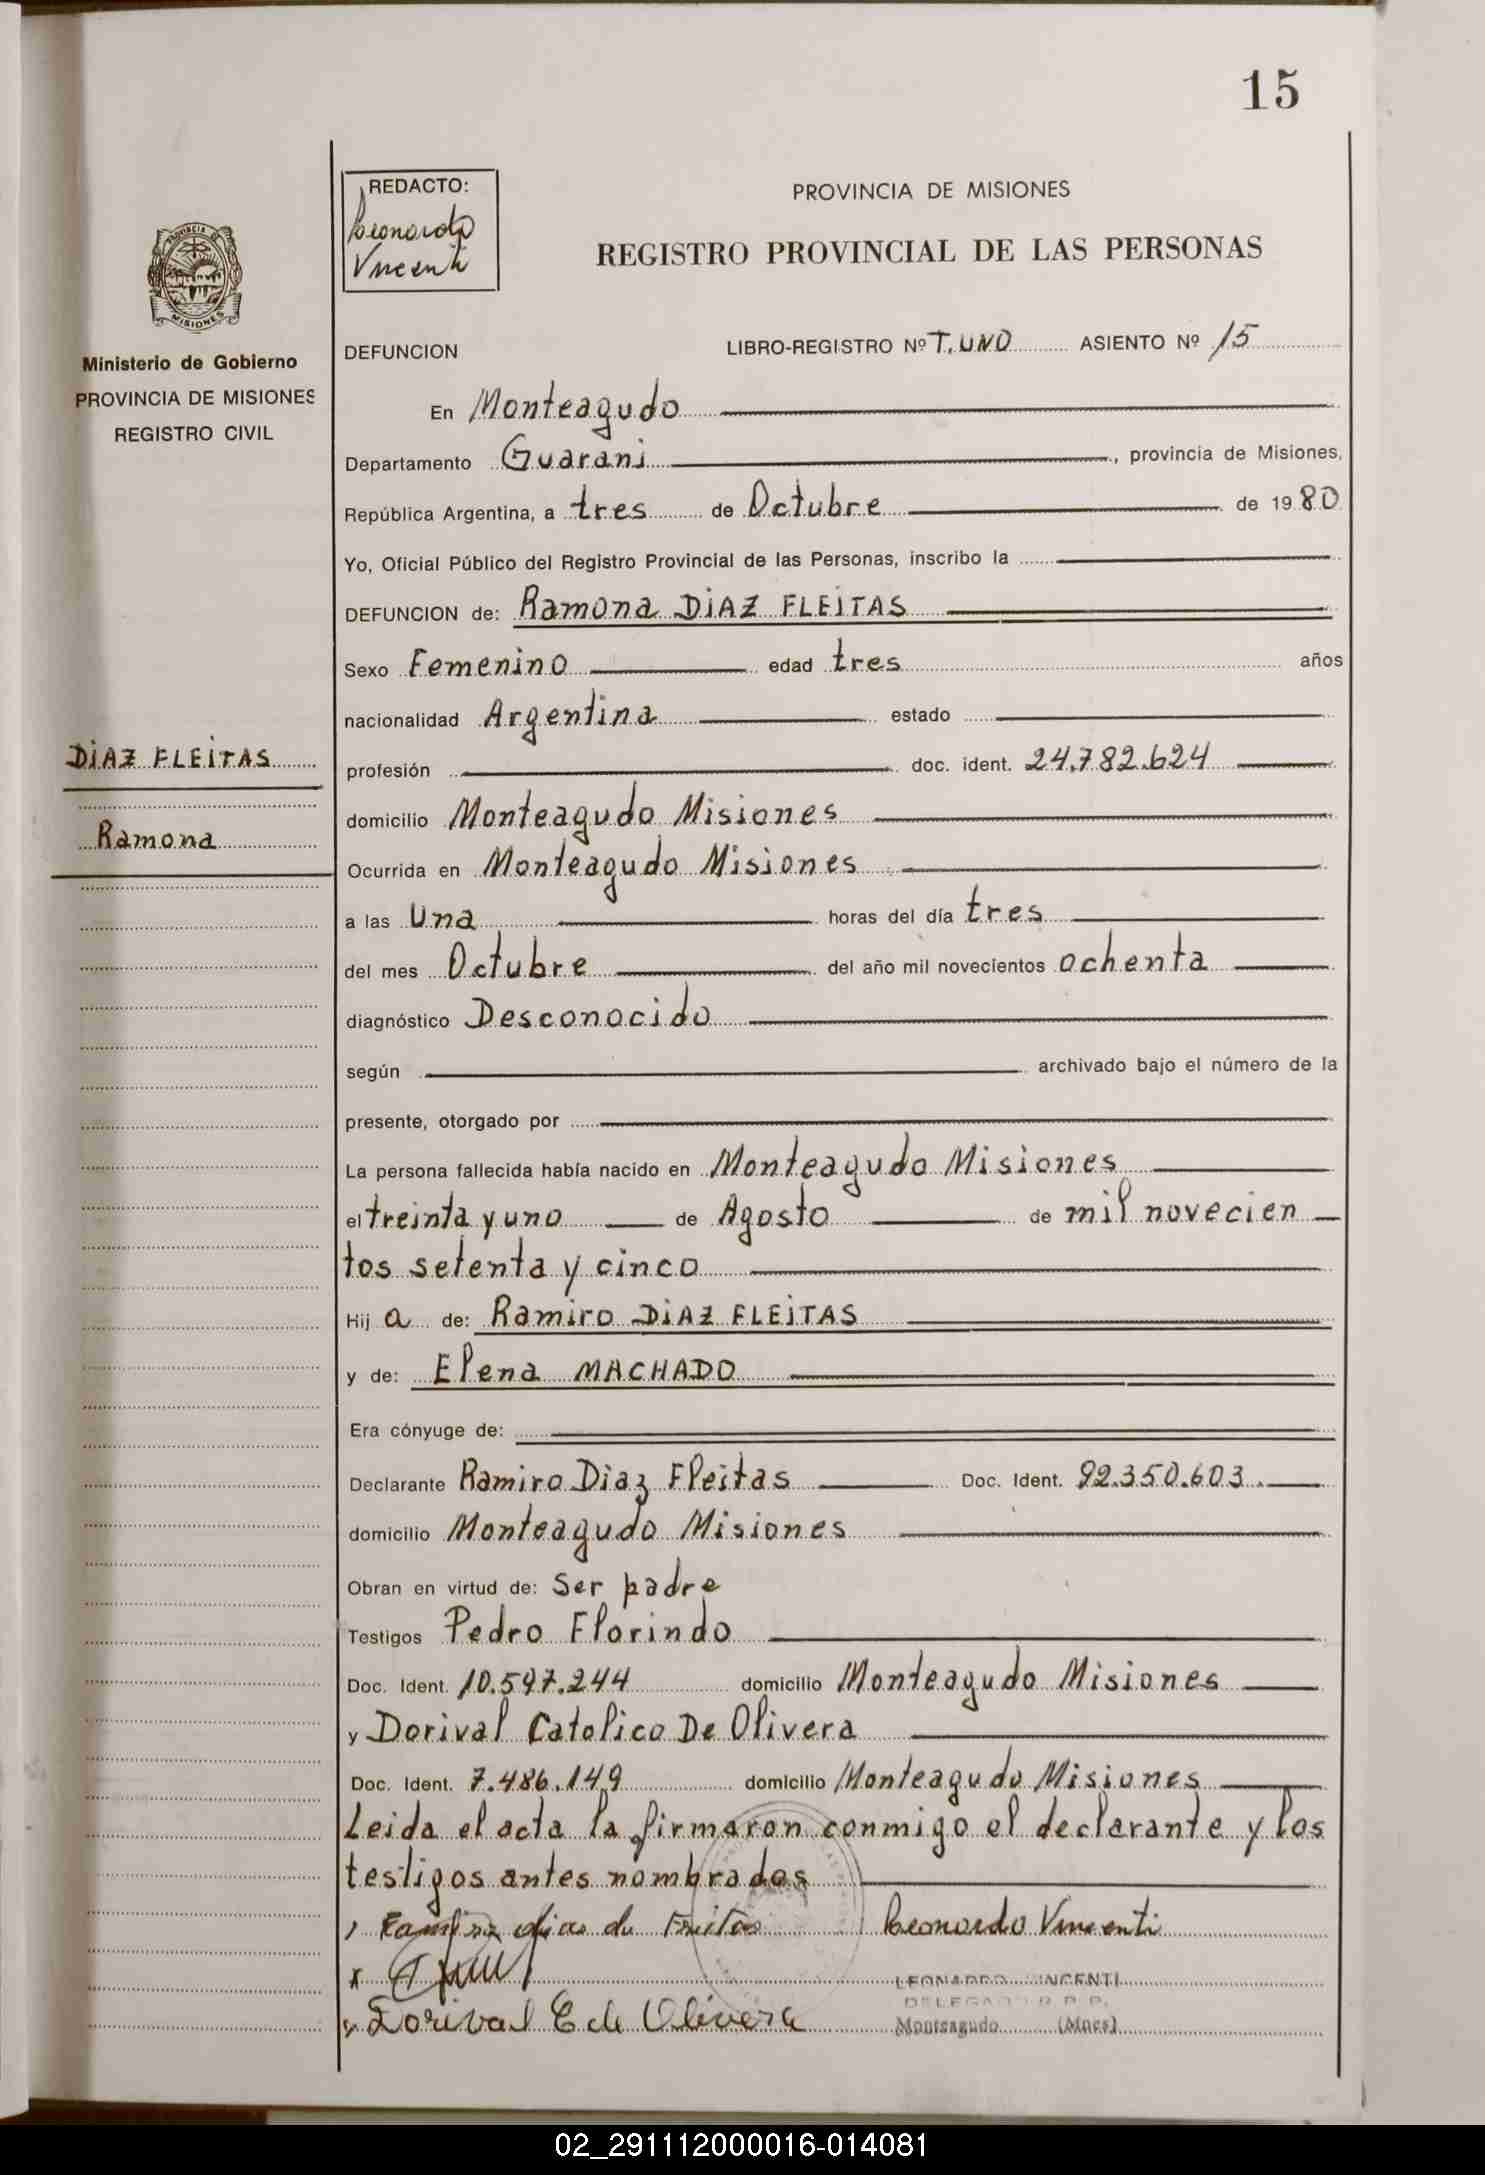 15
REDACTO:
Leonardo
Vincenti
PROVINCIA DE MISIONES
REGISTRO PROVINCIAL DE LAS PERSONAS
MISIONES
Ministerio de Gobierno
PROVINCIA DE MISIONES
REGISTRO CIVIL
DEFUNCION LIBRO-REGISTRO Nº T. UNO ASIENTO Nº 15
En Monteagudo
Departamento Guarani, provincia de Misiones,
República Argentina, a tres de Octubre de 1980
Yo, Oficial Público del Registro Provincial de las Personas, inscribo la
DEFUNCION de: Ramona DIAZ FLEITAS
Sexo Femenino edad tres años
nacionalidad Argentina estado
DIAZ FLEITAS
Ramona
profesión doc. ident. 24.782.624
domicilio Monteagudo Misiones
Ocurrida en Monteagudo Misiones
a las Una horas del día tres
del mes Octubre del año mil novecientos ochenta
diagnóstico Desconocido
según archivado bajo el número de la
presente, otorgado por
La persona fallecida había nacido en Monteagudo Misiones
el treinta y uno de Agosto de mil novecien
tos setenta y cinco
Hij a de: Ramiro DIAZ FLEITAS
y de: Elena MACHADO
Era cónyuge de:
Declarante Ramiro Diaz Fleitas Doc. Ident. 92.350.603.
domicilio Monteagudo Misiones
Obran en virtud de: Ser padre
Testigos Pedro Florindo
Doc. Ident. 10.597.244 domicilio Monteagudo Misiones
y Dorival Catolico De Olivera
Doc. Ident. 7.486.149 domicilio Monteagudo Misiones
Leida el acta la firmaron conmigo el declarante y los
testigos antes nombrados
dias de Freitas Leonardo Vincenti
LEONARDO VINCENTI
DELEGADO R. P. P.
Dorival C de Olivera Monteagudo (Mnes)
02_291112000016-014081